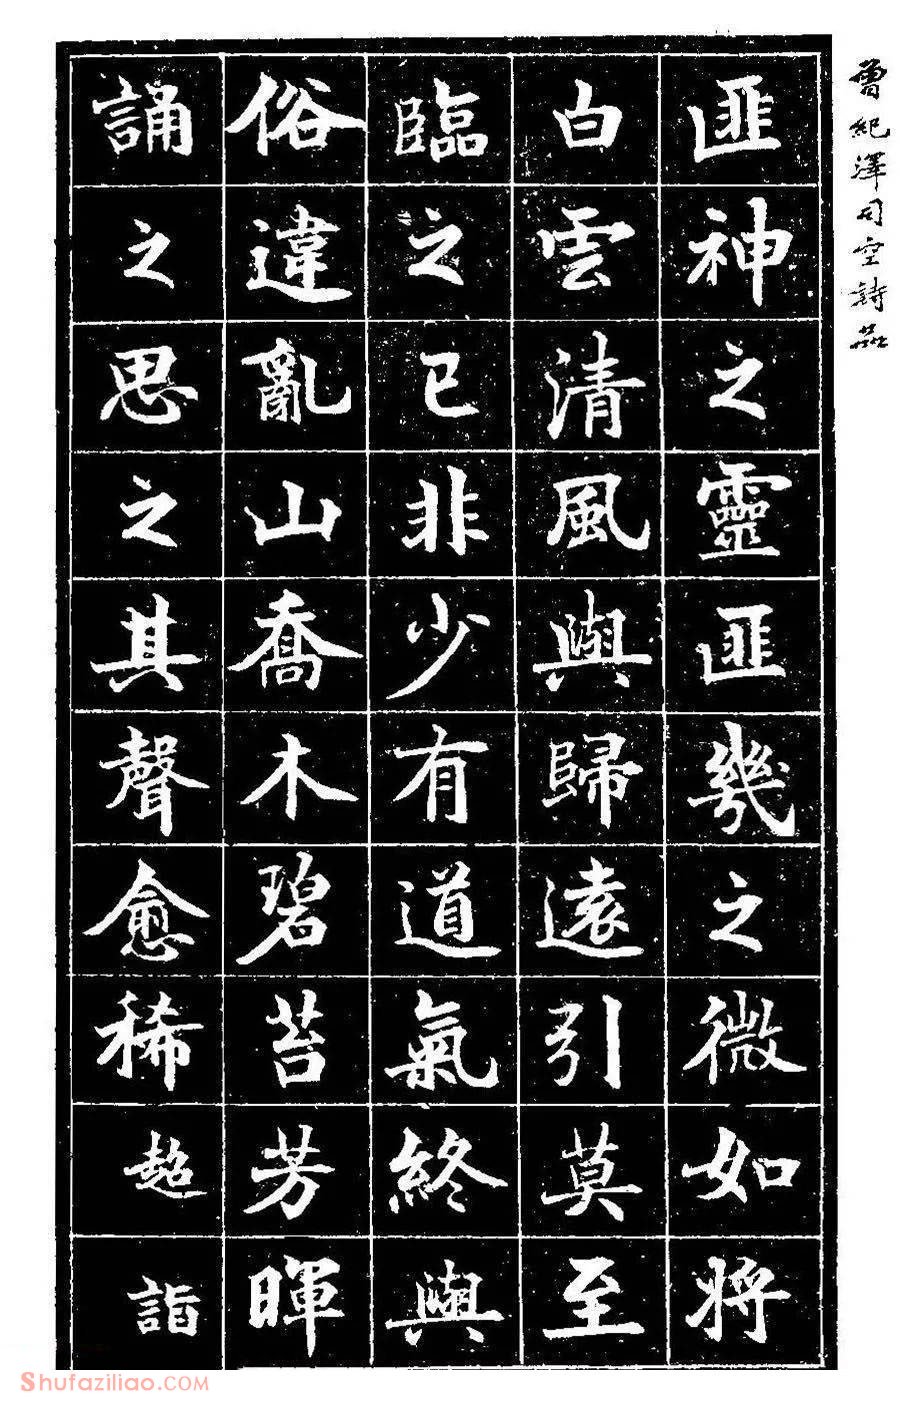 曾紀澤司空詩品
匪神之靈匪幾之微如將
白雲清風與歸遠引莫至
臨之已非少有道氣終與
俗違亂山喬木碧苔芳暉
誦之思之其聲愈稀超詣
Shufaziliao.COM